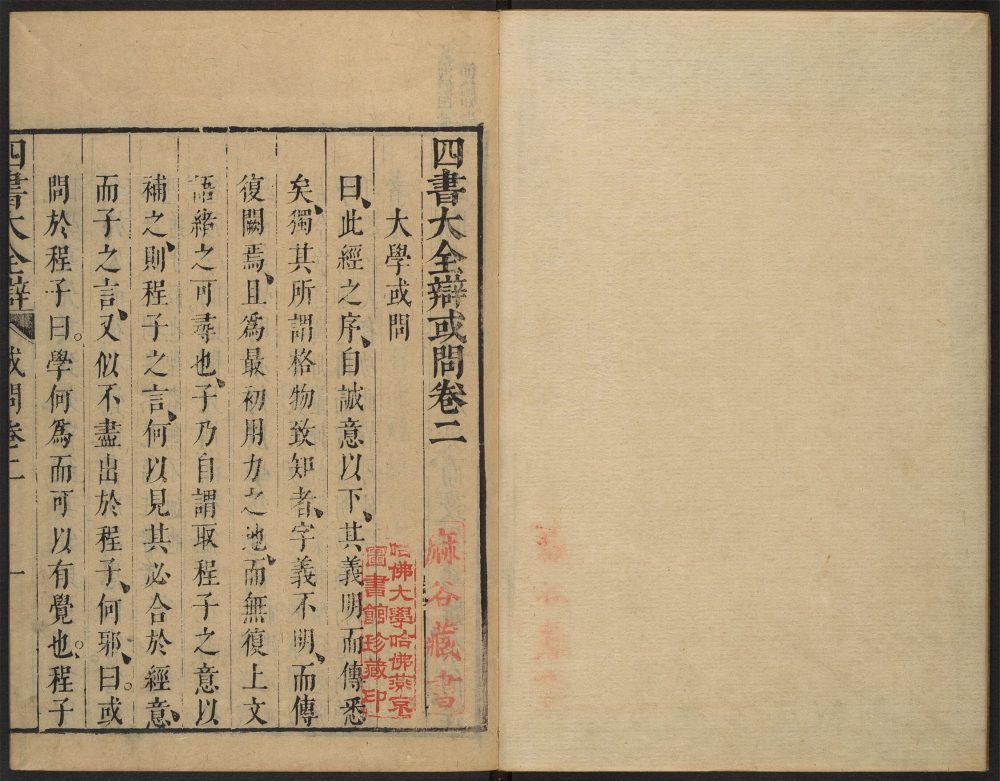 四書大全辯或問卷二
麻谷藏書
大學或問
哈佛大學哈佛燕京
圖書館珍藏印
曰、此經之序、自誠意以下、其義明而傳悉
矣、獨其所謂格物致知者、字義不明、而傳
復闕焉、且爲最初用力之地、而無復上文
語緒之可尋也、子乃自謂取程子之意以
補之、則程子之言、何以見其必合於經意、
而子之言、又似不盡出於程子、何邪、曰。或
問於程子曰。學何爲而可以有覺也。程子
四書大全辯 或問卷二 一